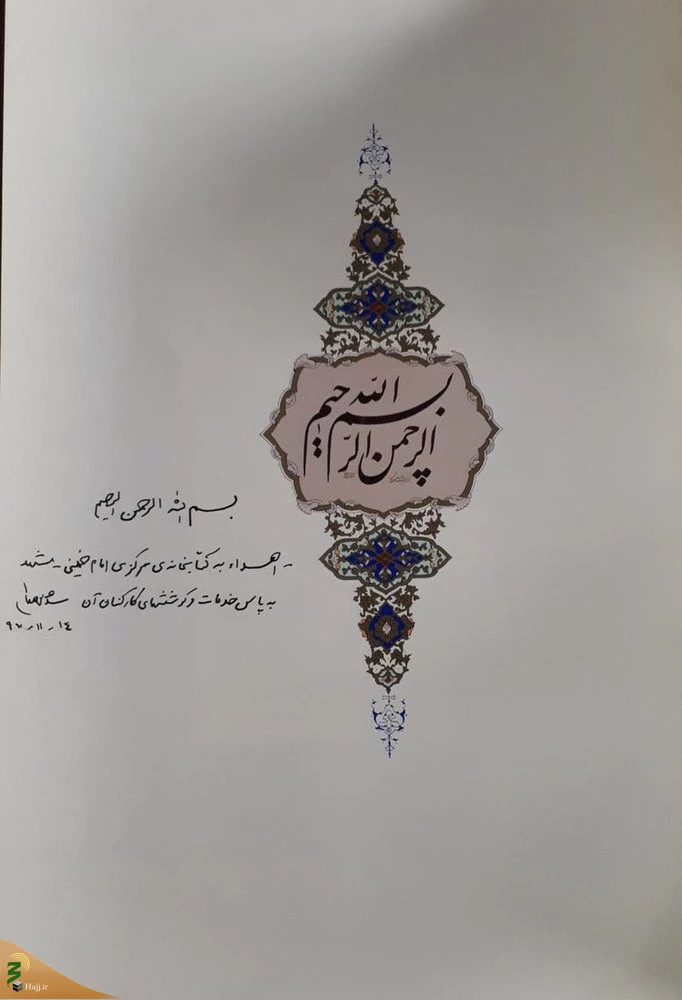 بسم الله الرحمن الرحیم
بسم الله الرحمن الرحیم
- اهداء به کتابخانه‌ی مرکزی امام خمینی - مشهد
به پاس خدمات و کوششهای کارکنان آن
۹۷ر۱۱ر۱۴
Hajj.ir